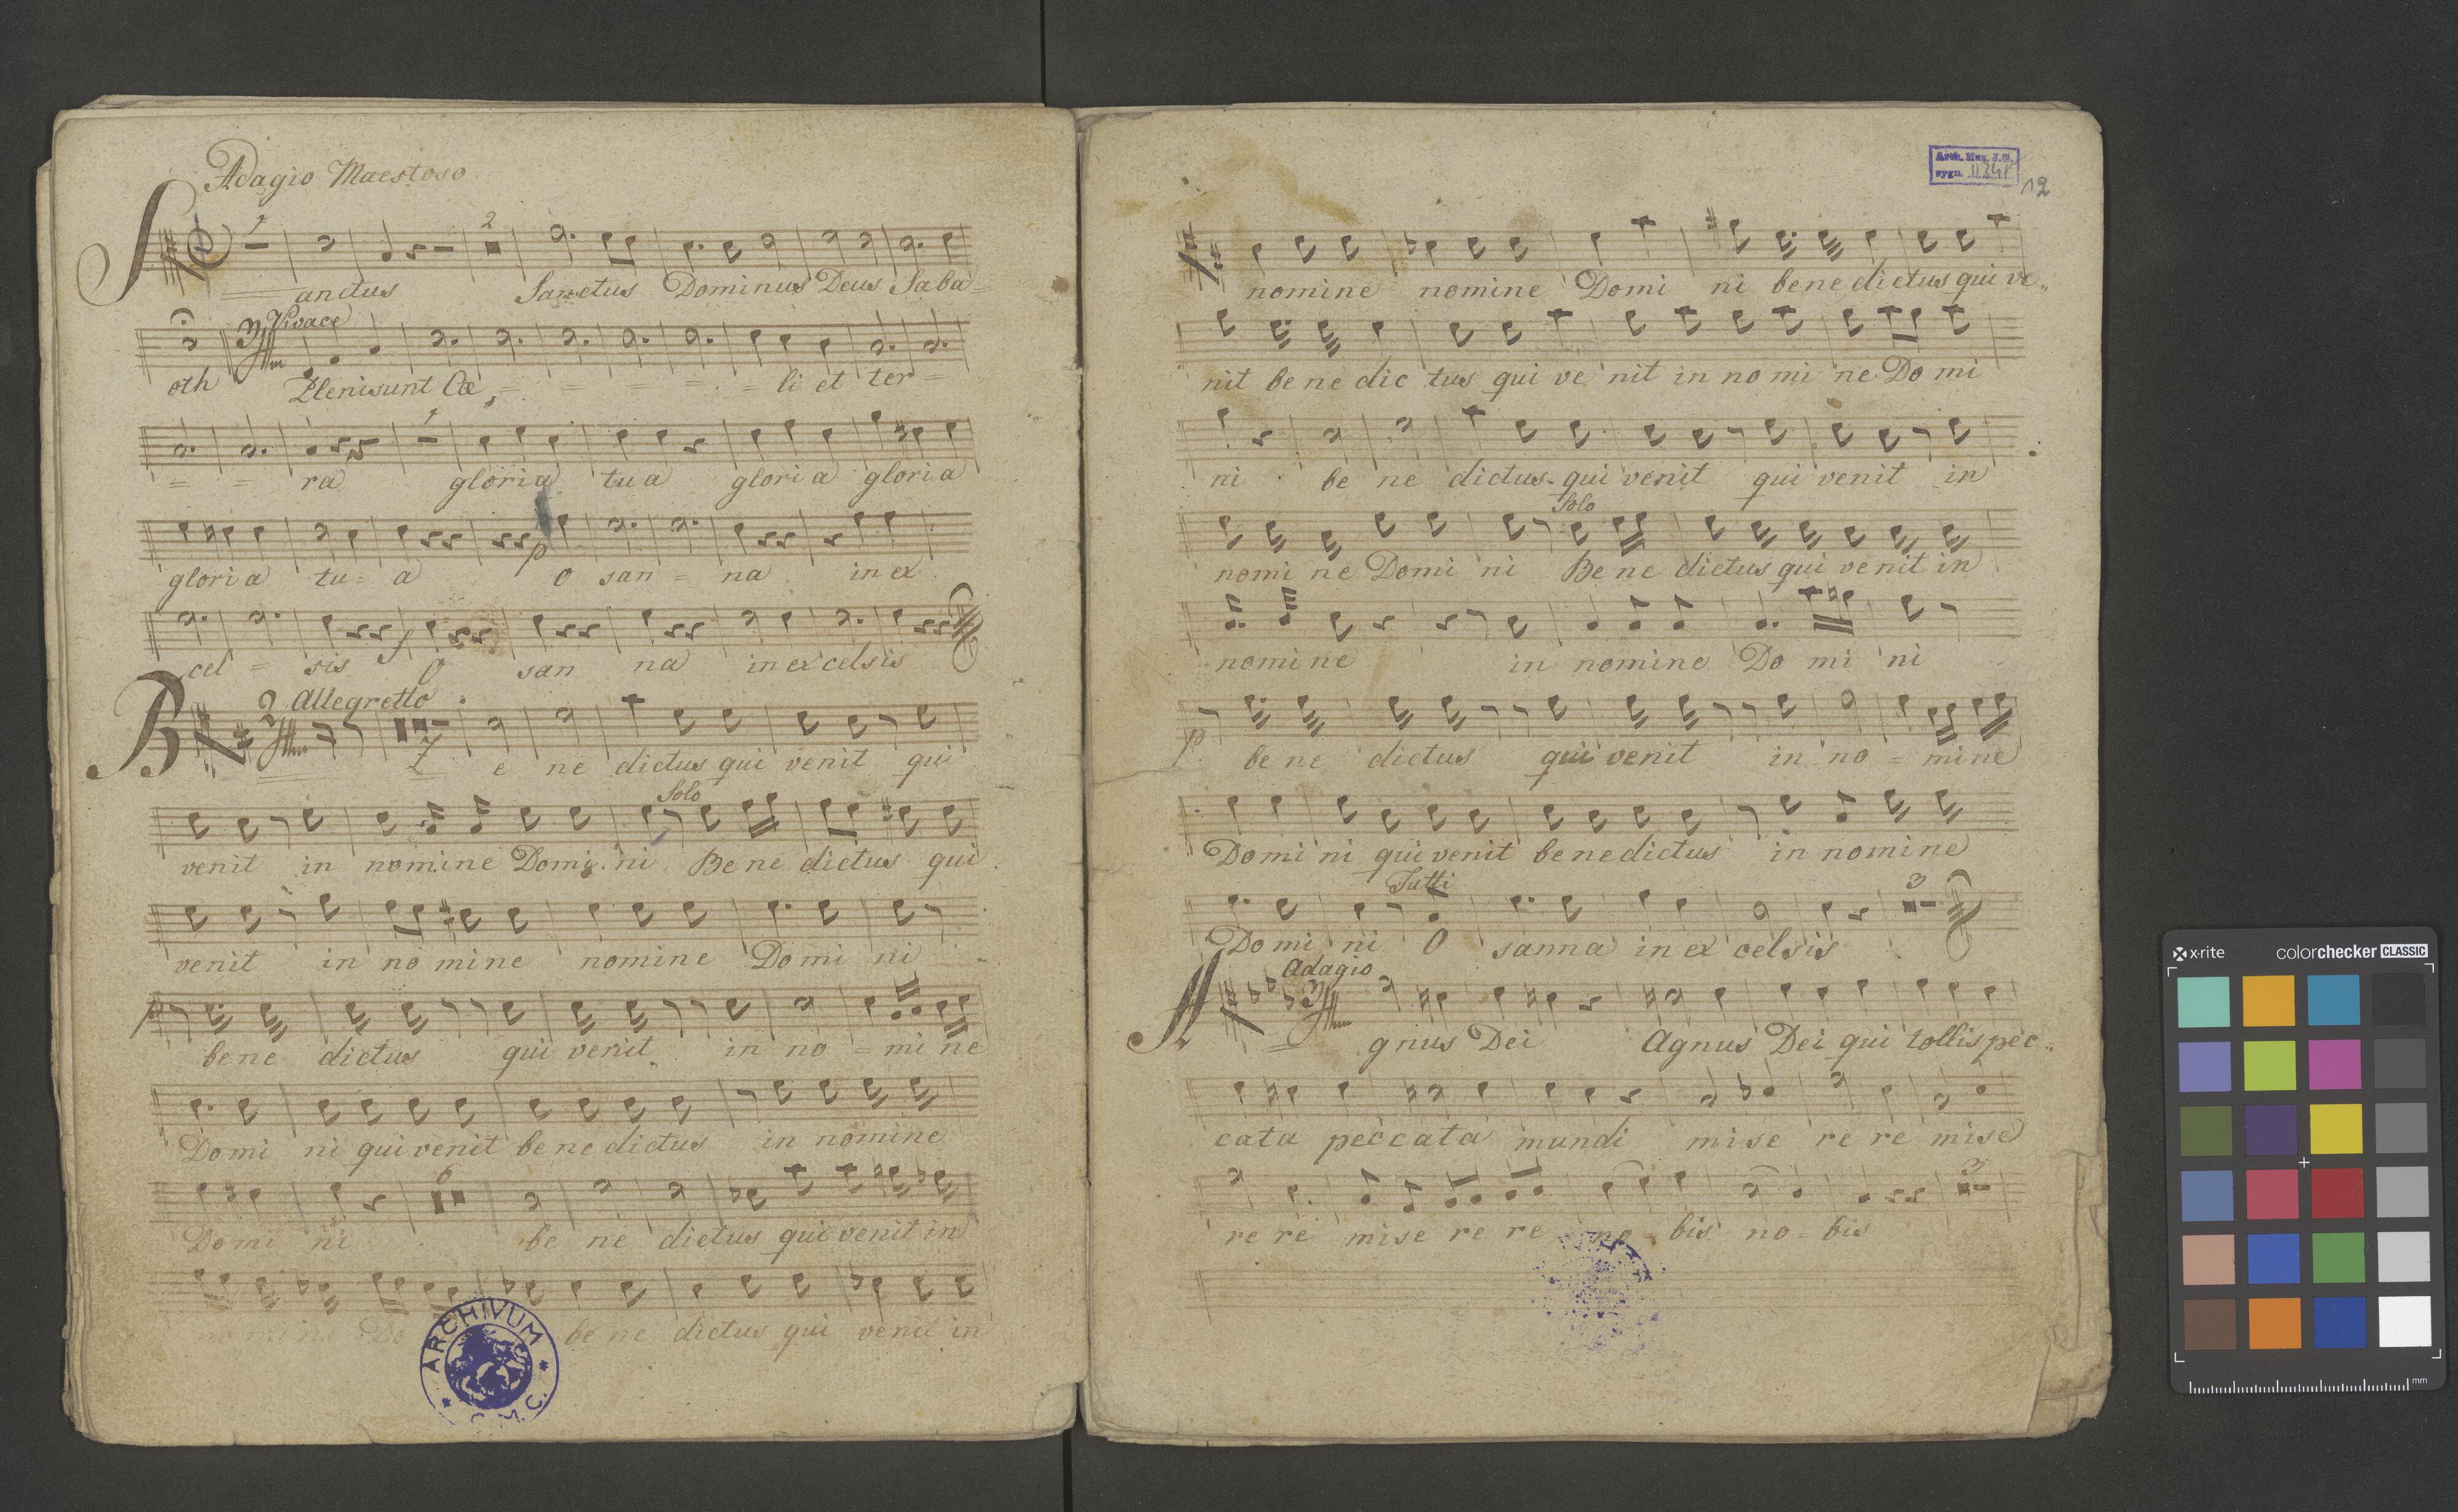 Adagio Maestoso
1 2
Sanctus Sanctus Dominus Deus Saba=
Vivace
oth Pleni sunt Cœ = = = = li et ter =
1
= = ra gloria tua gloria gloria
p
gloria tu = a o san = na in ex
f
cel = sis O san na in excelsis
Allegretto
7
Bene dictus qui venit qui
Solo
venit in nomine Domi ni Bene dictus qui
venit in no mine nomine Domi ni
p
bene dictus qui venit in no = mi ne
Domi ni qui venit benedictus in nomine
6
Domi ni be ne dictus qui venit in
Do be ne dictus qui venit in
ARCHIVUM
Arch. Muz. J.G.
sygn.
12
nomine nomine Domi ni benedictus qui ve„
nit be ne dic tus qui ve nit in no mi ne Do mi
ni be ne dictus qui venit qui venit in
Solo
nomi ne Domi ni Be ne dictus qui venit in
nomi ne in nomine Do mi ni
p
be ne dictus qui venit in no = mine
Domi ni qui venit benedictus in nomine
Tutti
3
Domi ni O sanna in ex celsis
Adagio
Agnus Dei Agnus Dei qui tollis pec„
cata peccata mundi mise re re mise
3
re re mise re re no = bis no = bis
x-rite colorchecker CLASSIC
mm